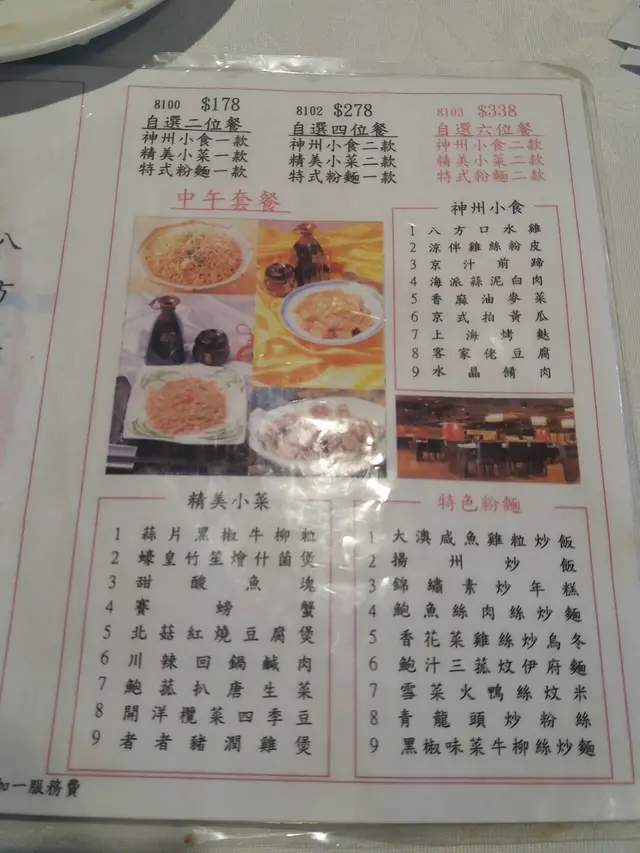 8100 $178
自選二位餐
神州小食一款
精美小菜一款
特式粉麵一款
8102 $278
自選四位餐
神州小食二款
精美小菜二款
特式粉麵二款
8103 $338
自選六位餐
神州小食二款
精美小菜二款
特式粉麵二款
中午套餐
神州小食
1 八方口水雞
2 涼伴雞絲粉皮
3 京汁前蹄
4 海派蒜泥白肉
5 香麻油麥菜
6 京式拍黃瓜
7 上海烤麩
8 客家佬豆腐
9 水晶餚肉
精美小菜
1 蒜片黑椒牛柳粒
2 蠔皇竹笙燴什菌煲
3 甜酸魚塊
4 賽螃蟹
5 北菇紅燒豆腐煲
6 川辣回鍋鹹肉
7 鮑菰扒唐生菜
8 開洋欖菜四季豆
9 者者豬潤雞煲
特色粉麵
1 大澳咸魚雞粒炒飯
2 揚州炒飯
3 錦繡素炒年糕
4 鮑魚絲肉絲炒麵
5 香花菜雞絲炒烏冬
6 鮑汁三菰炆伊府麵
7 雪菜火鴨絲炆米
8 青龍頭炒粉絲
9 黑椒味菜牛柳絲炒麵
八
方
加一服務費